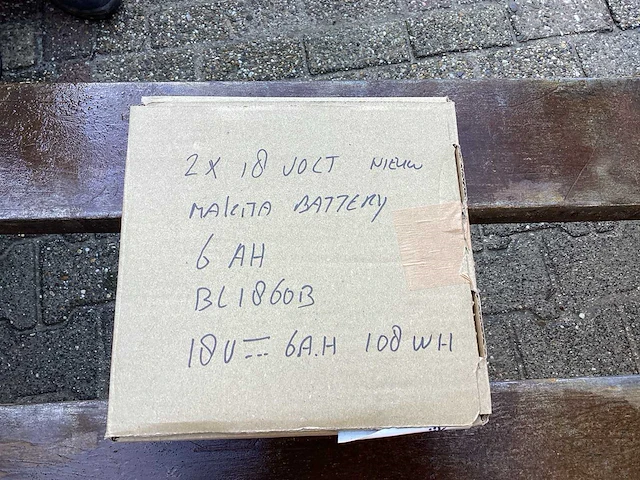 2 X 18 VOLT NIEUW
MAKITA BATTERY
6 AH
BL1860B
18V⎓ 6A.H 108 WH